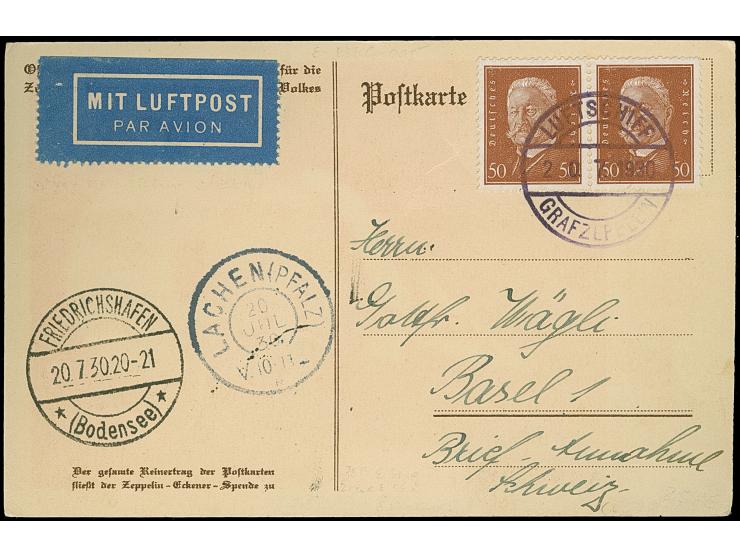 für die
Volkes
MIT LUFTPOST
PAR AVION
Postkarte
Deutsches Reich
50 50
Deutsches Reich
50 50
LUFTSCHIFF
20.7.1930
GRAF ZEPPELIN
Herrn
Gottfr. Wägli
Basel 1
Brief-Annahme
Schweiz
LACHEN (PFALZ)
20
JUL
30
V.10-11
FRIEDRICHSHAFEN
20.7.30.20-21
* (Bodensee) *
Der gesamte Reinertrag der Postkarten
fließt der Zeppelin-Eckener-Spende zu